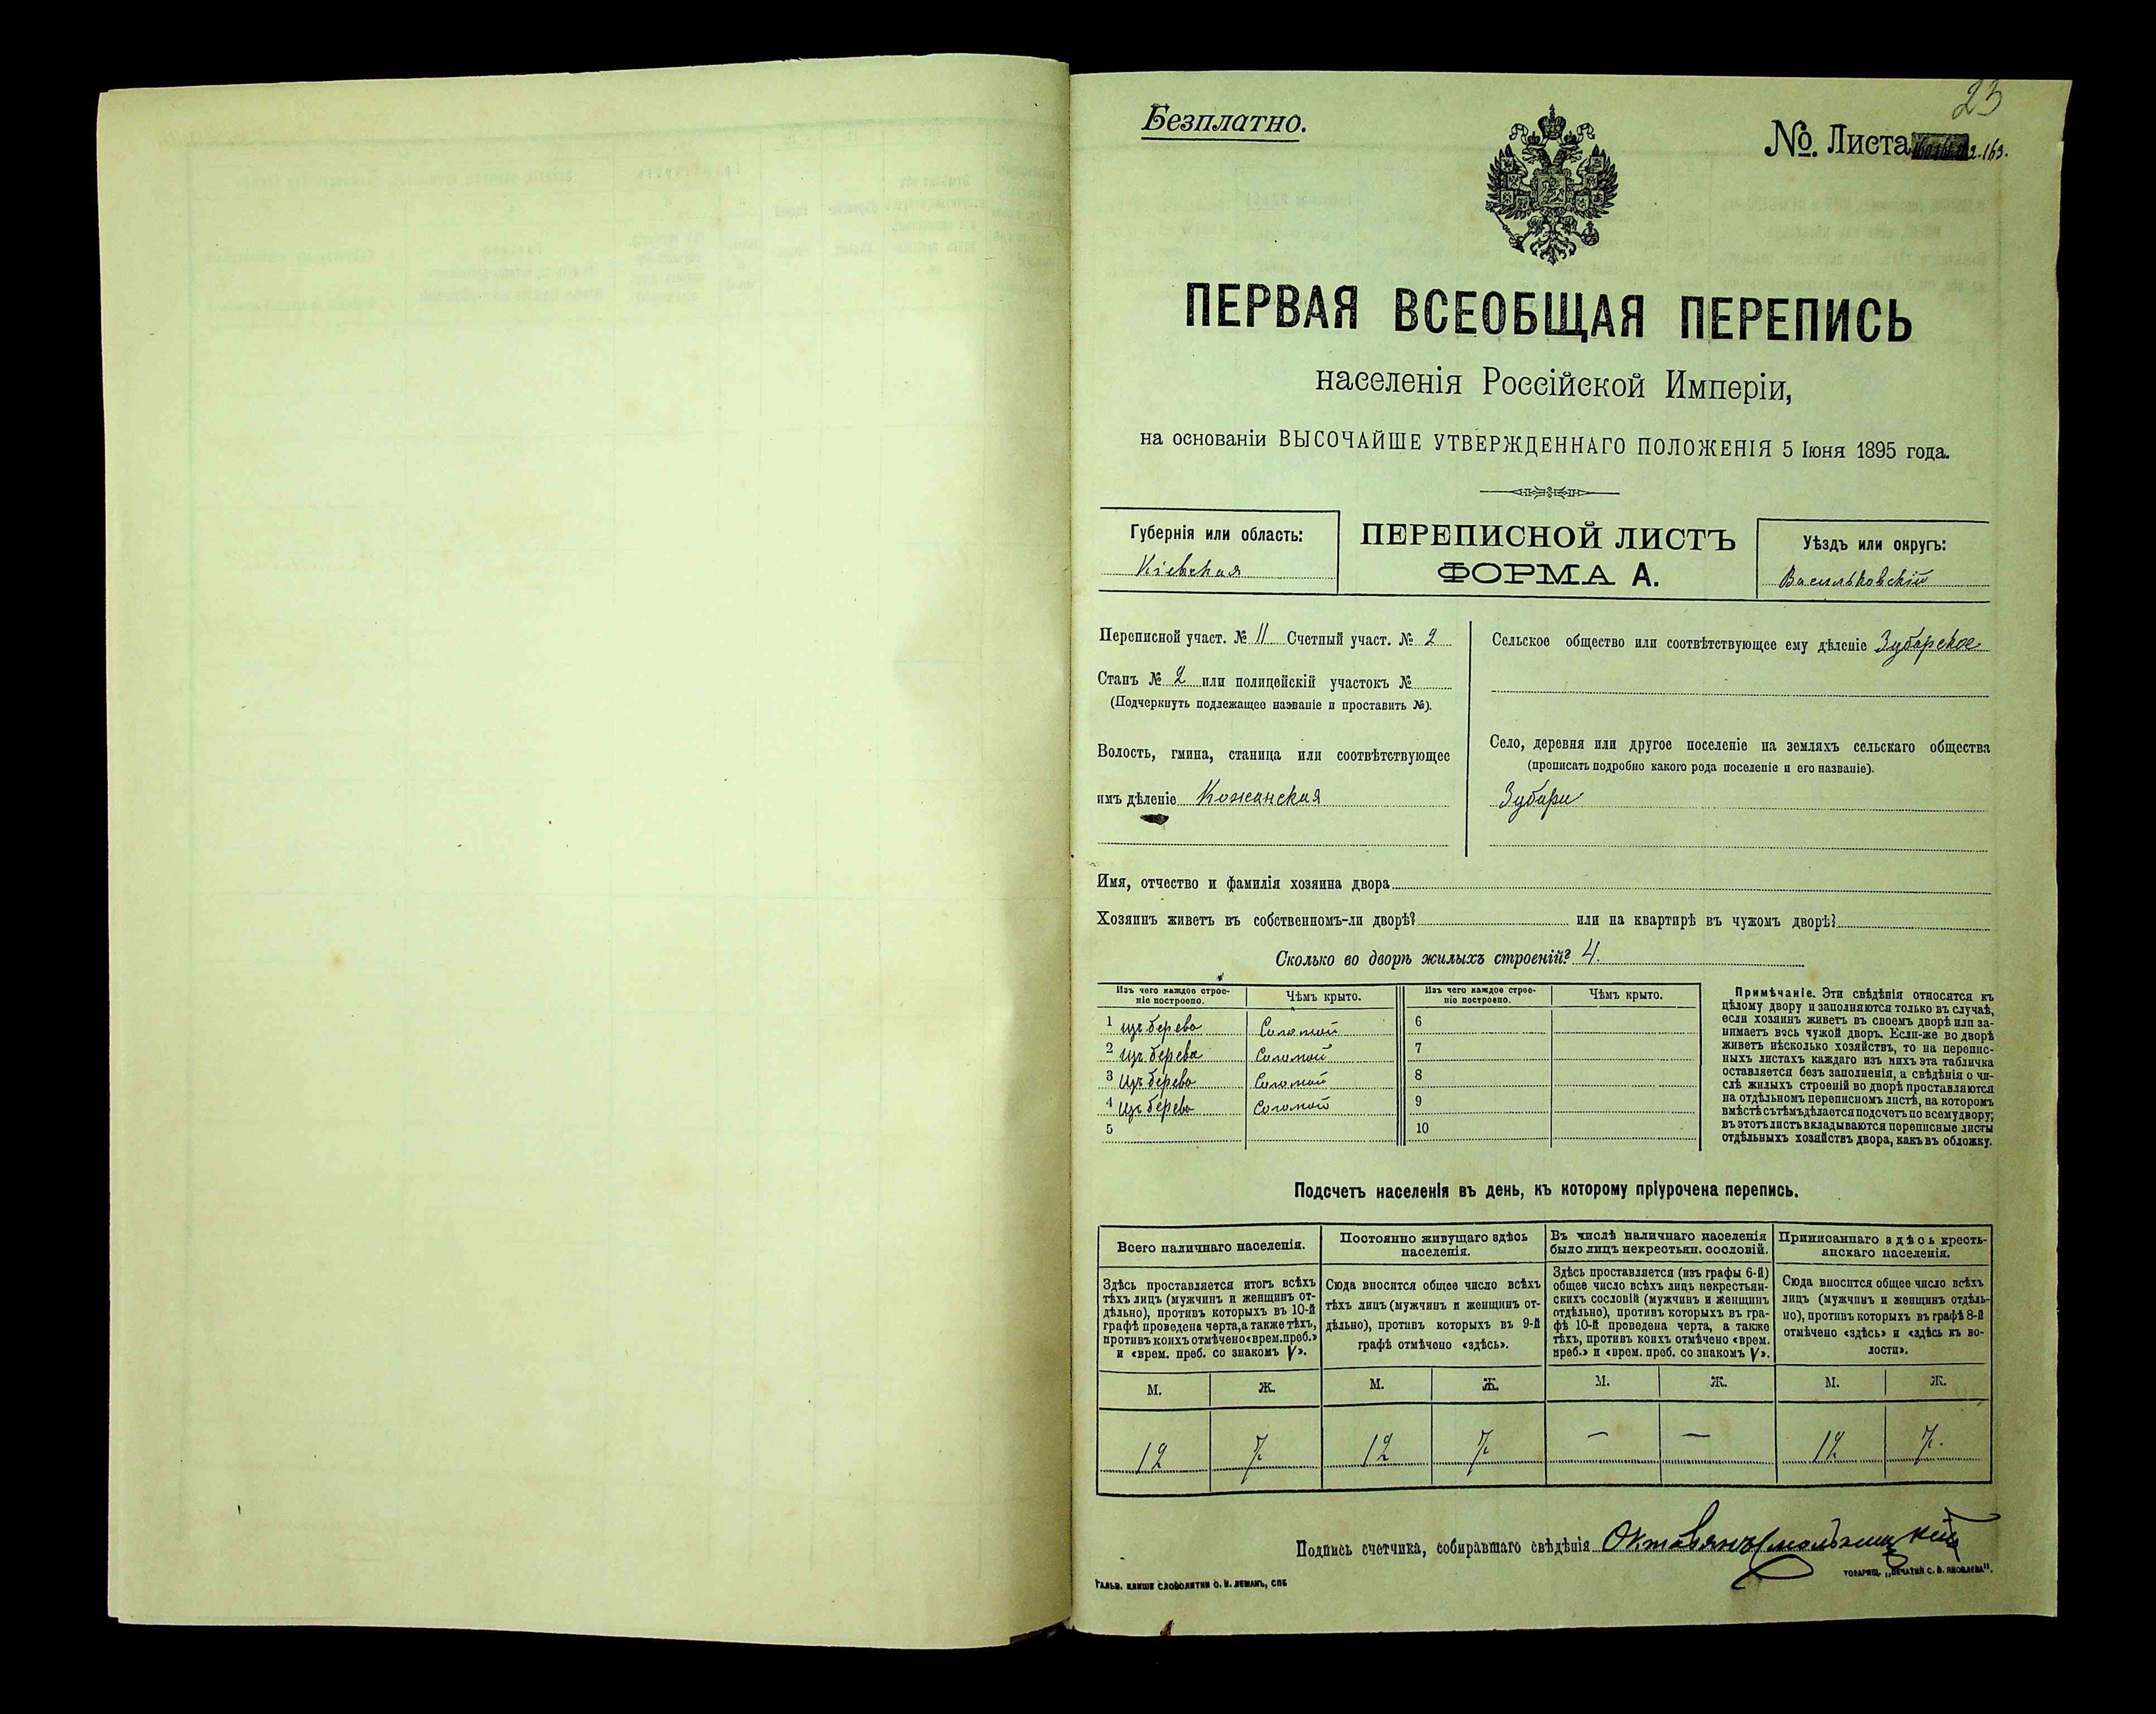 23
Безплатно.
№. Листа 163.
ПЕРВАЯ ВСЕОБЩАЯ ПЕРЕПИСЬ
населенія Россійской Имперіи,
на основаніи ВЫСОЧАЙШЕ УТВЕРЖДЕННАГО ПОЛОЖЕНІЯ 5 Іюня 1895 года.
Губернія или область:
Кіевская
ПЕРЕПИСНОЙ ЛИСТЪ
ФОРМА А.
Уѣздъ или округъ:
Васильковскій
Переписной участ. № 11 Счетный участ. № 2
Станъ № 2 или полицейскій участокъ №
(Подчеркнуть подлежащее названіе и проставить №).
Волость, гмина, станица или соотвѣтствующее
имъ дѣленіе Кожанская
Сельское общество или соотвѣтствующее ему дѣленіе Зубарское
Село, деревня или другое поселеніе на земляхъ сельскаго общества
(прописать подробно какого рода поселеніе и его названіе).
Зубари
Имя, отчество и фамилія хозяина двора
Хозяинъ живетъ въ собственномъ-ли дворѣ? или на квартирѣ въ чужомъ дворѣ?
Сколько во дворѣ жилыхъ строеній? 4.
Изъ чего каждое строе-
ніе построено.
Чѣмъ крыто.
Изъ чего каждое строе-
ніе построено.
Чѣмъ крыто.
1 изъ дерева Соломой 6
2 изъ дерева Соломой 7
3 изъ дерева Соломой 8
4 изъ дерева Соломой 9
5 10
Примѣчаніе. Эти свѣдѣнія относятся къ
цѣлому двору и заполняются только въ случаѣ,
если хозяинъ живетъ въ своемъ дворѣ или за-
нимаетъ весь чужой дворъ. Если-же во дворѣ
живетъ нѣсколько хозяйствъ, то на перепис-
ныхъ листахъ каждаго изъ нихъ эта табличка
оставляется безъ заполненія, а свѣдѣнія о чи-
слѣ жилыхъ строеній во дворѣ проставляются
на отдѣльномъ переписномъ листѣ, на которомъ
вмѣстѣ съ тѣмъ дѣлается подсчетъ по всему двору;
въ этотъ листъ вкладываются переписные листы
отдѣльныхъ хозяйствъ двора, какъ въ обложку.
Подсчетъ населенія въ день, къ которому пріурочена перепись.
Всего наличнаго населенія.
Здѣсь проставляется итогъ всѣхъ
тѣхъ лицъ (мужчинъ и женщинъ от-
дѣльно), противъ которыхъ въ 10-й
графѣ проведена черта, а также тѣхъ,
противъ коихъ отмѣчено «врем. преб.»
и «врем. преб. со знакомъ V».
Постоянно живущаго здѣсь
населенія.
Сюда вносится общее число всѣхъ
тѣхъ лицъ (мужчинъ и женщинъ от-
дѣльно), противъ которыхъ въ 9-й
графѣ отмѣчено «здѣсь».
Въ числѣ наличнаго населенія
было лицъ некрестьян. сословій.
Здѣсь проставляется (изъ графы 6-й)
общее число всѣхъ лицъ некрестьян-
скихъ сословій (мужчинъ и женщинъ
отдѣльно), противъ которыхъ въ гра-
фѣ 10-й проведена черта, а также
тѣхъ, противъ коихъ отмѣчено «врем.
преб.» и «врем. преб. со знакомъ V».
Приписаннаго здѣсь кресть-
янскаго населенія.
Сюда вносится общее число всѣхъ
лицъ (мужчинъ и женщинъ отдѣль-
но), противъ которыхъ въ графѣ 8-й
отмѣчено «здѣсь» и «здѣсь къ во-
лости».
М. Ж. М. Ж. М. Ж. М. Ж.
12 7 12 7 — — 12 7.
Подпись счетчика, собиравшаго свѣдѣнія
Гальв. клише словолитни О. И. Леманъ, СПБ
Товарищ. „Печатня С. П. Яковлева".